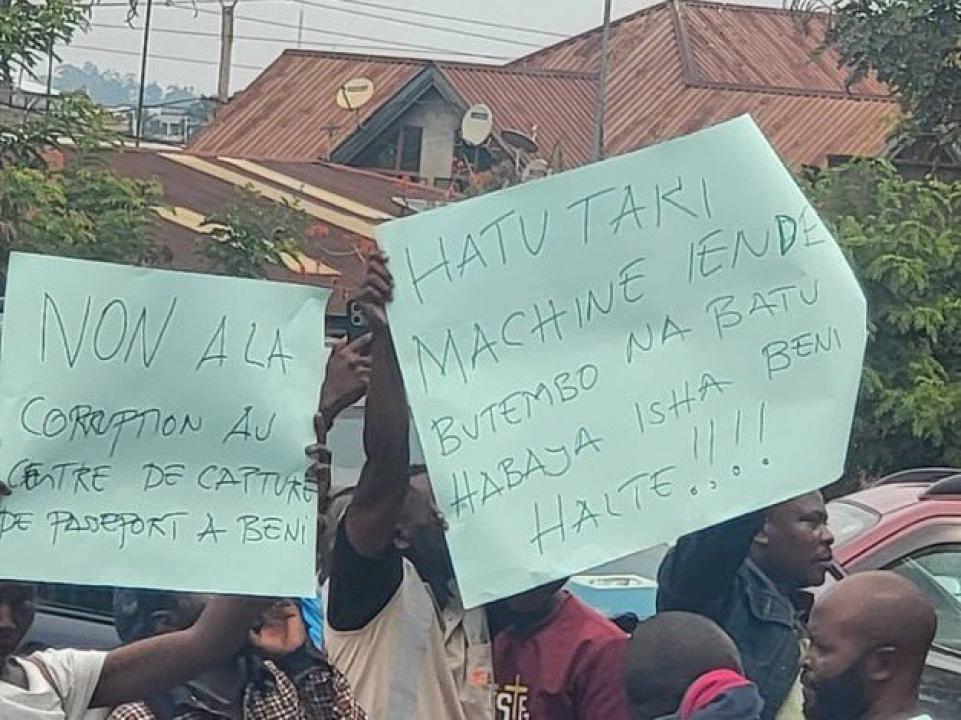 NON A LA
CORRUPTION AU
CENTRE DE CAPTURE
DE PASSEPORT A BENI
HATU TAKI
MACHINE IENDE
BUTEMBO NA BATU
HABAJA ISHA BENI
HALTE..!!!!